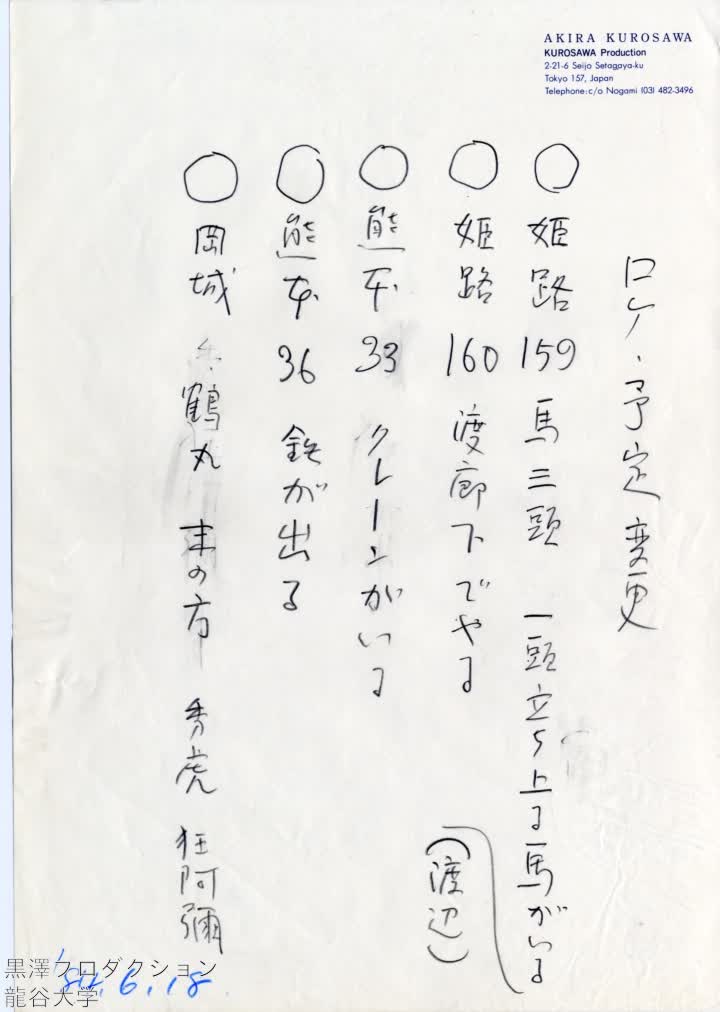 AKIRA KUROSAWA
KUROSAWA Production
2-21-6 Seijo Setagaya-ku
Tokyo 157, Japan
Telephone: c/o Nogami (03) 482-3496
ロケ、予定変更
○姫路 159 馬三頭 一頭立ち上る馬がいる
(渡辺)
○姫路 160 渡廊下でやる
○熊本 33 クレーンがいる
○熊本 36 鉄が出る
○岡城 鶴丸 末の方 秀虎 狂阿彌
'84.6.18
黒澤プロダクション
龍谷大学